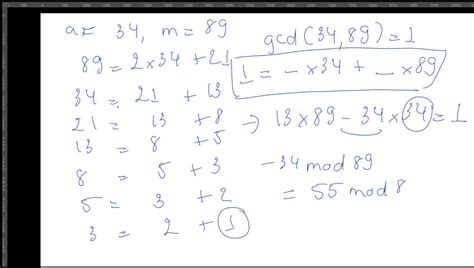 a= 34, m = 89
89 = 2 × 34 + 21
34 = 21 + 13
21 = 13 + 8
13 = 8 + 5
8 = 5 + 3
5 = 3 + 2
3 = 2 + 1
gcd(34, 89) = 1
1 = _ × 34 + _ × 89
→ 13 × 89 - 34 × 34 = 1
-34 mod 89
= 55 mod 8